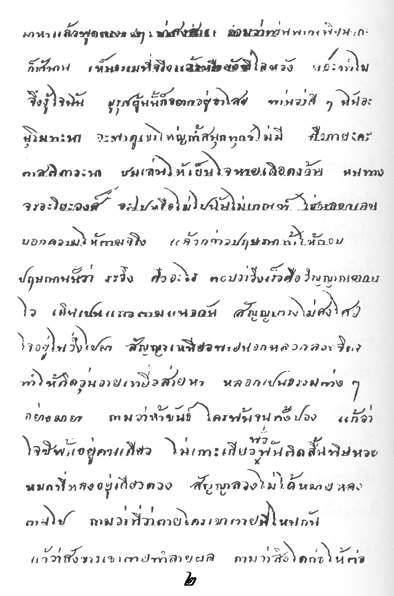 มาหาแล้วพูดตรงๆ น่าสงสาร ถามว่าท่านพากเพียรมา
ก็ช้านาน เห็นธรรมที่จริงแล้วหรือยังที่ใจหวัง เอ๊ะทำไม
จึงรู้ใจฉัน บุรุษผู้นั้นก็อยากอยู่อาไศย ท่านว่าดี ๆ ฉันอะ
นุโมทะนา จะพาดูเขาใหญ่ถ้ำสนุกทุกข์ไม่มี คือกายะคะ
ตาสติภาวะนา ชมเล่นให้เย็นใจหายเดือดร้อน หนทาง
จรอะริยะวงค์ จะไปหรือไม่ไปฉันไม่เกณฑ์ ใช่หลอกเล่น
บอกความให้ตามจริง แล้วกล่าวปฤษณาท้าให้ตอบ
ปฤษณานั้นว่า ระวิ่ง คืออะไร ตอบว่าวิ่งเร็วคือวิญญาณอาการ
ใจ เดินเปนแถวตามแนวกัน สัญญาตรงไม่สงไสย
ใจอยู่ในวิ่งไปมา สัญญาเหนี่ยวภายนอกหลอกลวงจิตร
ทำให้คิดวุ่นวายเที่ยวส่ายหา หลอกเปนธรรมต่าง ๆ
อย่างมายา ถามว่าห้าขันธ์ ใครพ้นจนทั้งปวง แก้ว่า
ใจซิพ้นอยู่คนเดียว ไม่เกาะเกี่ยวพัวพันติดสิ้นพิษหวง
หมดที่หลงอยู่เดียวดวง สัญญาลวงไม่ได้หมายหลง
ตามไป ถามว่าที่ว่าตายใครเขาตายที่ไหนกัน
แก้ว่าสังขารเขาตายทำลายผล ถามว่าสิ่งใดก่อให้ต่อ
๒